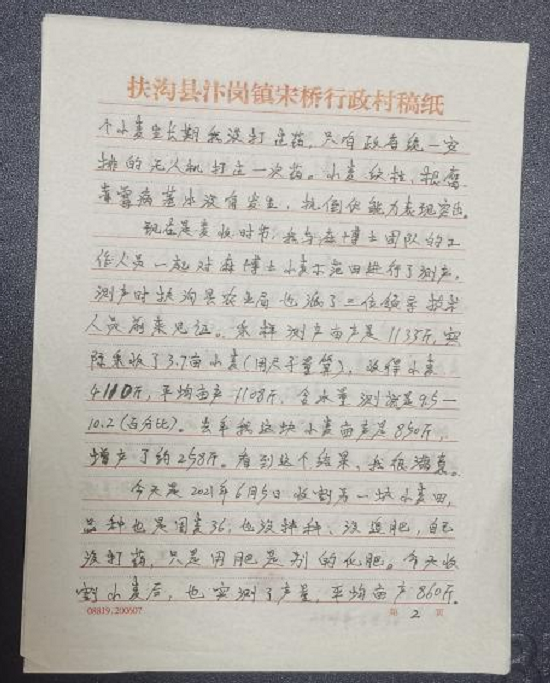 扶沟县汴岗镇宋桥行政村稿纸
个小麦生长期我没打过药,只有政府统一安
排的无人机打过一次药。小麦纹枯、根腐、
赤霉病基本没有发生,抗倒伏能力表现突出。
现在是麦收时节,我与麻博士团队的工
作人员一起对麻博士小麦示范田进行了测产,
测产时扶沟县农业局也派了二位领导技术
人员前来见证。采样测产亩产是1135斤,实
际采收了3.7亩小麦(用尺子量算),收得小麦
4110斤,平均亩产1108斤,含水量测试是9.5—
10.2(百分比)。去年我这块小麦亩产是850斤,
增产了约258斤。看到这个结果,我很满意。
今天是2021年6月5日收割另一块小麦田,
品种也是周麦36,也没拌种、没追肥,自己
没打药,只是用肥是别的化肥。今天收
割小麦后,也实测了产量,平均亩产860斤。
08819.200507
第 2 页